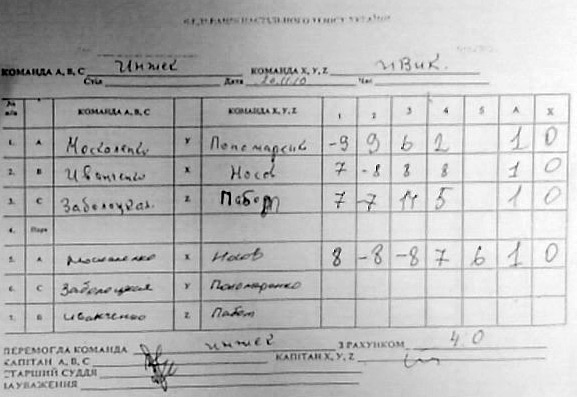 ФЕДЕРАЦІЯ НАСТІЛЬНОГО ТЕНІСУ УКРАЇНИ
КОМАНДА A, B, C Инжек КОМАНДА X, Y, Z ИВиК.
Стіл Дата 20.11.10 Час
№ п/п КОМАНДА A, B, C КОМАНДА X, Y, Z 1 2 3 4 5 A X
1. A Москаленко Y Пономаренко -9 9 6 2 1 0
2. B Иванченко X Носов 7 -8 8 8 1 0
3. C Заболоцкая Z 7 -7 11 5 1 0
4. Пара
5. A Москаленко X Носов 8 -8 -8 7 6 1 0
6. C Заболоцкая Y Пономаренко
7. B Иванченко Z
ПЕРЕМОГЛА КОМАНДА инжек З РАХУНКОМ 4 0
КАПІТАН A, B, C КАПІТАН X, Y, Z
СТАРШИЙ СУДДЯ
ЗАУВАЖЕННЯ